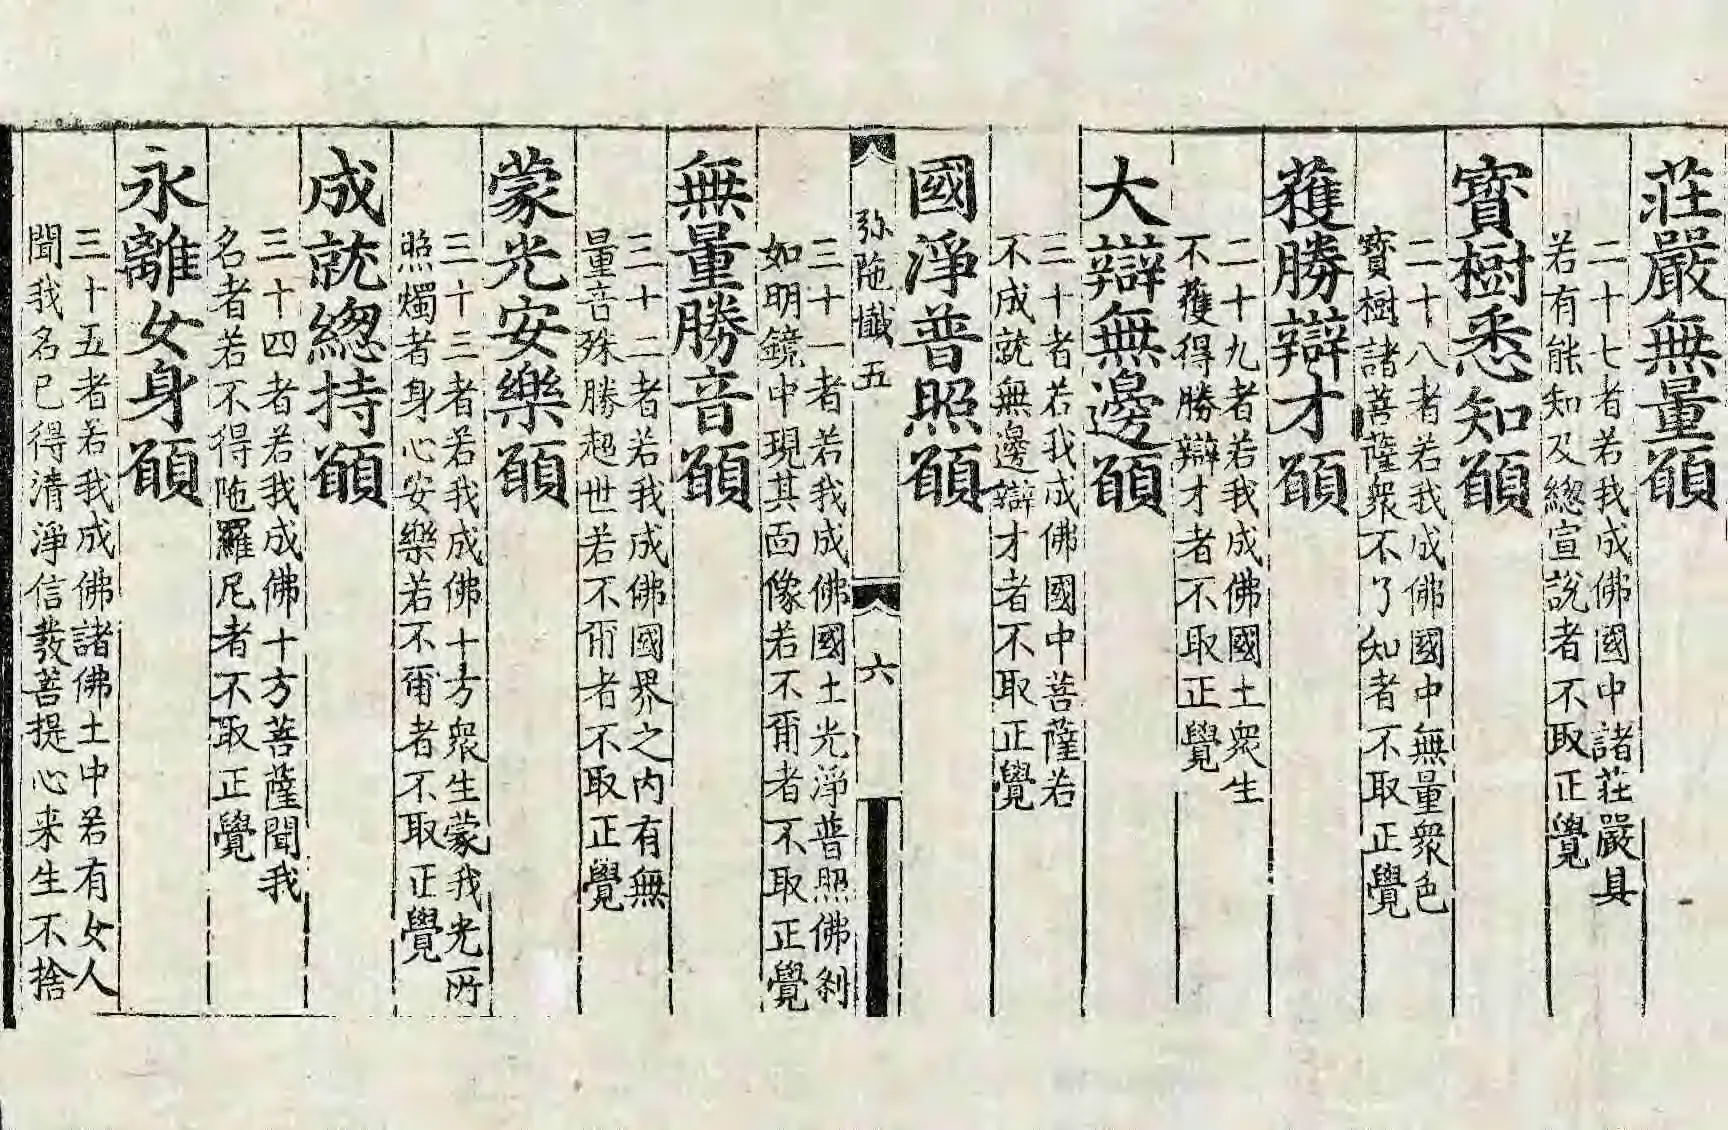 莊嚴無量願
二十七者若我成佛國中諸莊嚴具
若有能知及緫宣說者不取正覺
寳樹悉知願
二十八者若我成佛國中無量衆色
寳樹諸菩薩衆不了知者不取正覺
獲勝辯才願
二十九者若我成佛國土衆生
不獲得勝辯才者不取正覺
大辯無邊願
三十者若我成佛國中菩薩若
不成就無邊辯才者不取正覺
國淨普照願
弥陁懴五
六
三十一者若我成佛國土光淨普照佛刹
如明鏡中現其面像若不爾者不取正覺
無量勝音願
三十二者若我成佛國界之内有無
量音殊勝超世若不爾者不取正覺
蒙光安樂願
三十三者若我成佛十方衆生蒙我光所
照燭者身心安樂若不爾者不取正覺
成就緫持願
三十四者若我成佛十方菩薩聞我
名者若不得陁羅尼者不取正覺
永離女身願
三十五者若我成佛諸佛土中若有女人
聞我名已得清淨信發菩提心来生不捨